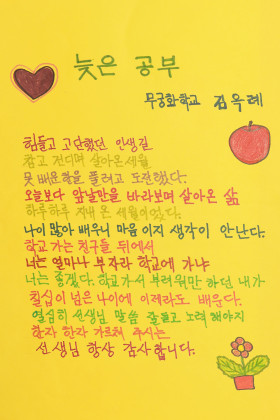 늦은 공부
무궁화학교 김옥례
힘들고 고단했던 인생길
참고 견디며 살아온세월
못 배운한을 풀려고 도전했다.
오늘보다 앞날만을 바라보며 살아온 삶
하루하루 지내 온 세월이었다.
나이 많아 배우니 마음 이지 생각이 안난다.
학교가는 친구들 뒤에서
너는 얼마나 부자라 학교에 가냐
너는 좋겠다. 학교가서 부러워만 하던 내가
칠십이 넘은 나이에 이제라도 배운다.
열심히 선생님 말씀 잘듣고 노력 해야지
한자 한자 가르쳐 주시는
선생님 항상 감사합니다.